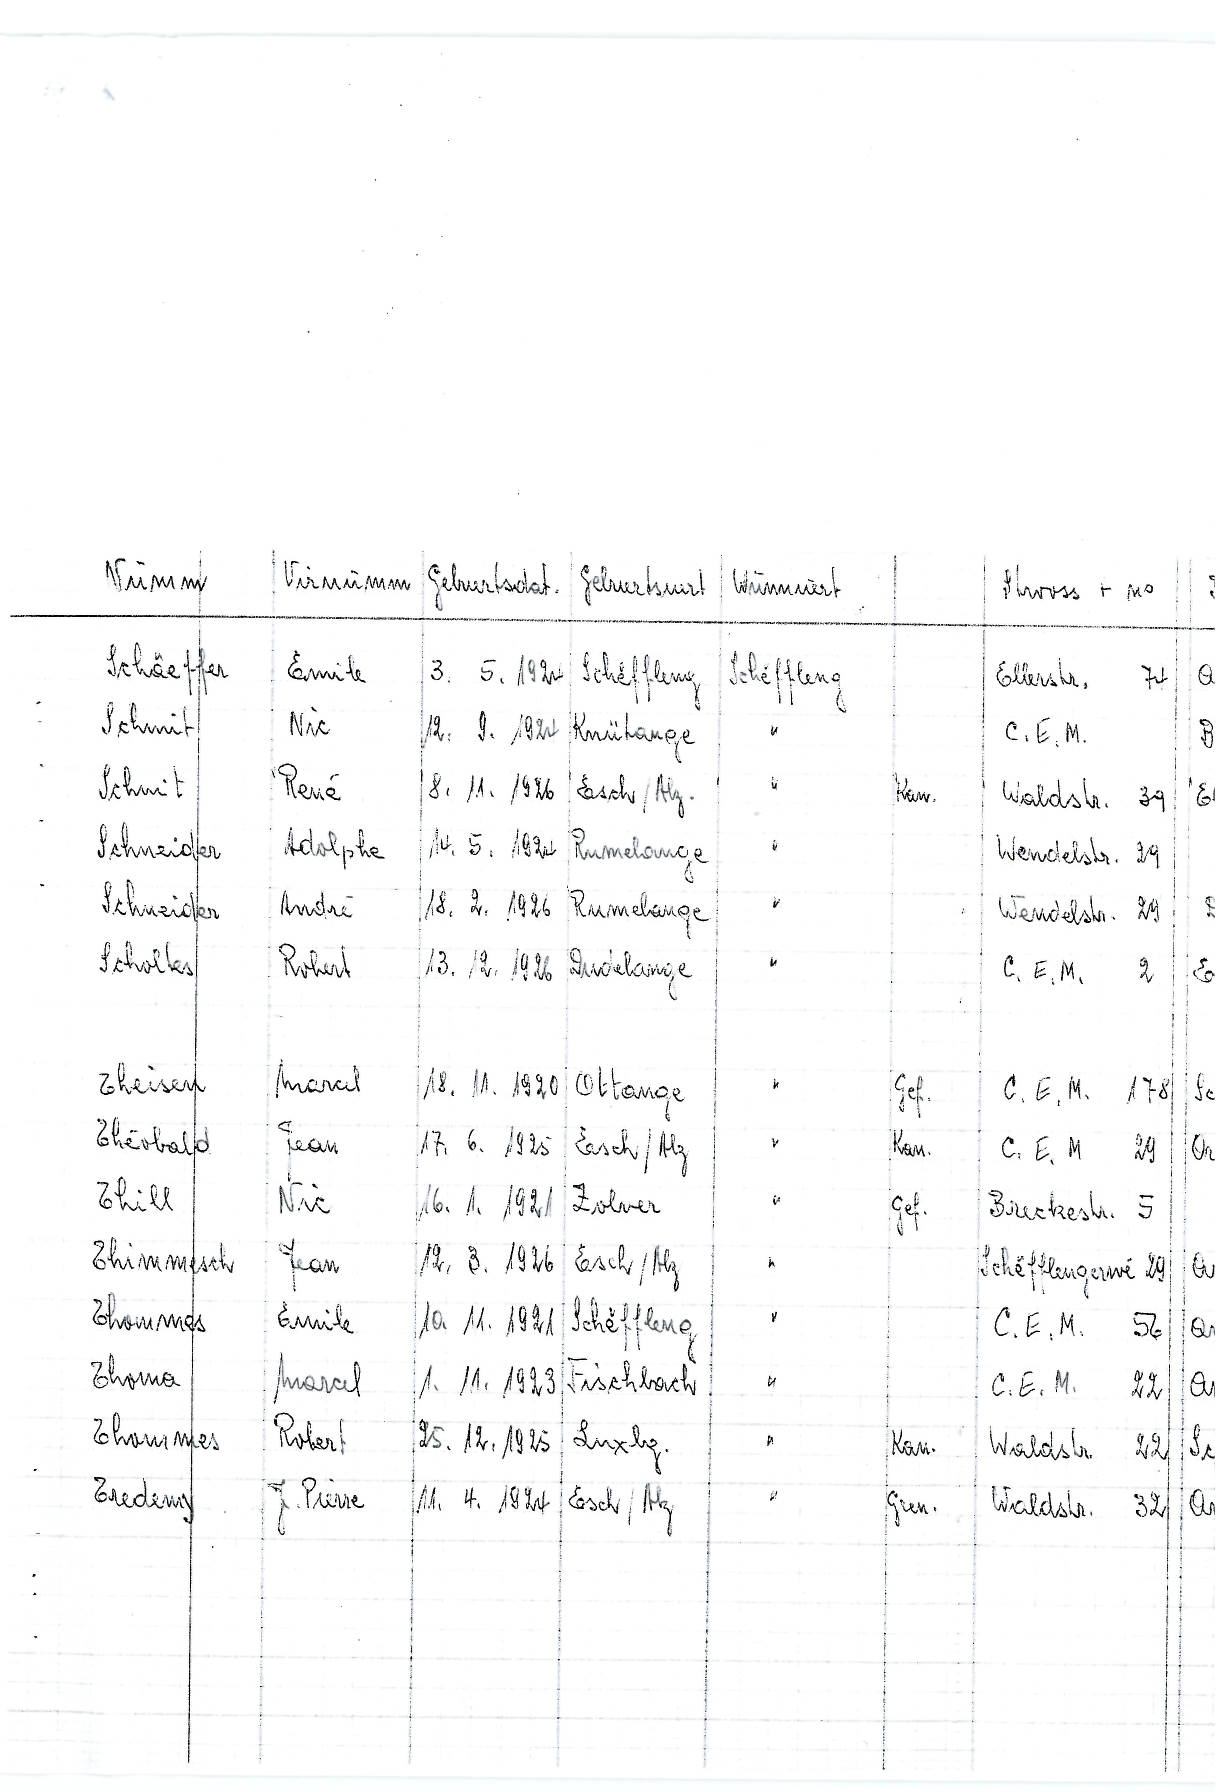 Nùmm Virnùmm Geburtsdat. Geburtsuert Wunnuert Strooss + no
Schäeffer Emile 3. 5. 1924 Schëffleng Schëffleng Ellerstr. 74 O
Schmit Nic 12. 9. 1924 Knütange " C.E.M. B
Schmit René 8. 11. 1926 Esch/Alz. " Kan. Waldstr. 39
Schneider Adolphe 14. 5. 1924 Rumelange " Wendelstr. 29
Schneider André 18. 2. 1926 Rumelange " Wendelstr. 29
Scholtes Robert 13. 12. 1926 Dudelange " C.E.M. 2 E
Theisen Marcel 18. 11. 1920 Ottange " Gef. C.E.M. 178 Sc
Théobald Jean 17. 6. 1925 Esch/Alz " Kan. C.E.M 29 Or
Thill Nic 16. 1. 1921 Zolver " Gef. Breckestr. 5
Thimmesch Jean 12. 3. 1926 Esch/Alz " Schëfflengerwé 29
Thommes Emile 10 11. 1921 Schëffleng " C.E.M. 56
Thoma Marcel 1. 11. 1923 Fischbach " C.E.M. 22
Thommes Robert 25. 12. 1925 Luxbg. " Kan. Waldstr. 22 Sc
Tredemy J. Pierre 11. 4. 1924 Esch/Alz " Gren. Waldstr. 32